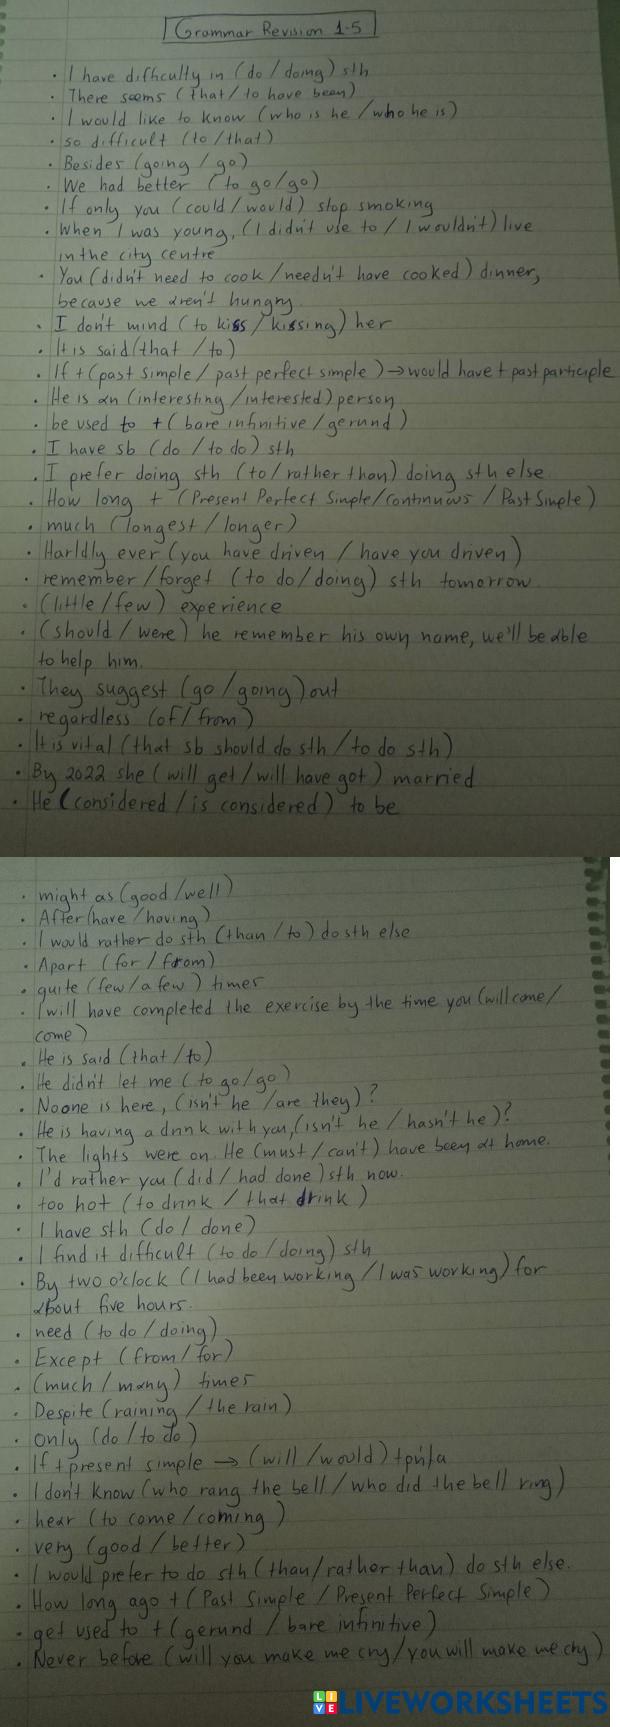 Grammar Revision 1-5
· I have difficulty in (do / doing) sth
· There seems (that / to have been)
· I would like to know (who is he / who he is)
· so difficult (to / that)
· Besides (going / go)
· We had better (to go / go)
· If only you (could / would) stop smoking
· When I was young, (I didn't use to / I wouldn't) live
in the city centre
· You (didn't need to cook / needn't have cooked) dinner,
because we aren't hungry.
· I don't mind (to kiss / kissing) her
· It is said (that / to)
· If + (past simple / past perfect simple) → would have + past participle
· He is an (interesting / interested) person
· be used to + (bare infinitive / gerund)
· I have sb (do / to do) sth
· I prefer doing sth (to / rather than) doing sth else
· How long + (Present Perfect Simple/Continuous / Past Simple)
· much (longest / longer)
· Harldly ever (you have driven / have you driven)
· remember / forget (to do / doing) sth tomorrow
· (little / few) experience
· (should / were) he remember his own name, we'll be able
to help him.
· They suggest (go / going) out
· regardless (of / from)
· It is vital (that sb should do sth / to do sth)
· By 2022 she (will get / will have got) married
· He (considered / is considered) to be
· might as (good / well)
· After (have / having)
· I would rather do sth (than / to) do sth else
· Apart (for / from)
· quite (few / a few) times
· I will have completed the exercise by the time you (will come /
come)
· He is said (that / to)
· He didn't let me (to go / go)
· Noone is here, (isn't he / are they)?
· He is having a drink with you, (isn't he / hasn't he)?
· The lights were on. He (must / can't) have been at home.
· I'd rather you (did / had done) sth now.
· too hot (to drink / that drink)
· I have sth (do / done)
· I find it difficult (to do / doing) sth
· By two o'clock (I had been working / I was working) for
about five hours.
· need (to do / doing)
· Except (from / for)
· (much / many) times
· Despite (raining / the rain)
· only (do / to do)
· If + present simple → (will / would) + ρήμα
· I don't know (who rang the bell / who did the bell ring)
· hear (to come / coming)
· very (good / better)
· I would prefer to do sth (than / rather than) do sth else.
· How long ago + (Past Simple / Present Perfect Simple)
· get used to + (gerund / bare infinitive)
· Never before (will you make me cry / you will make me cry)
LIVEWORKSHEETS